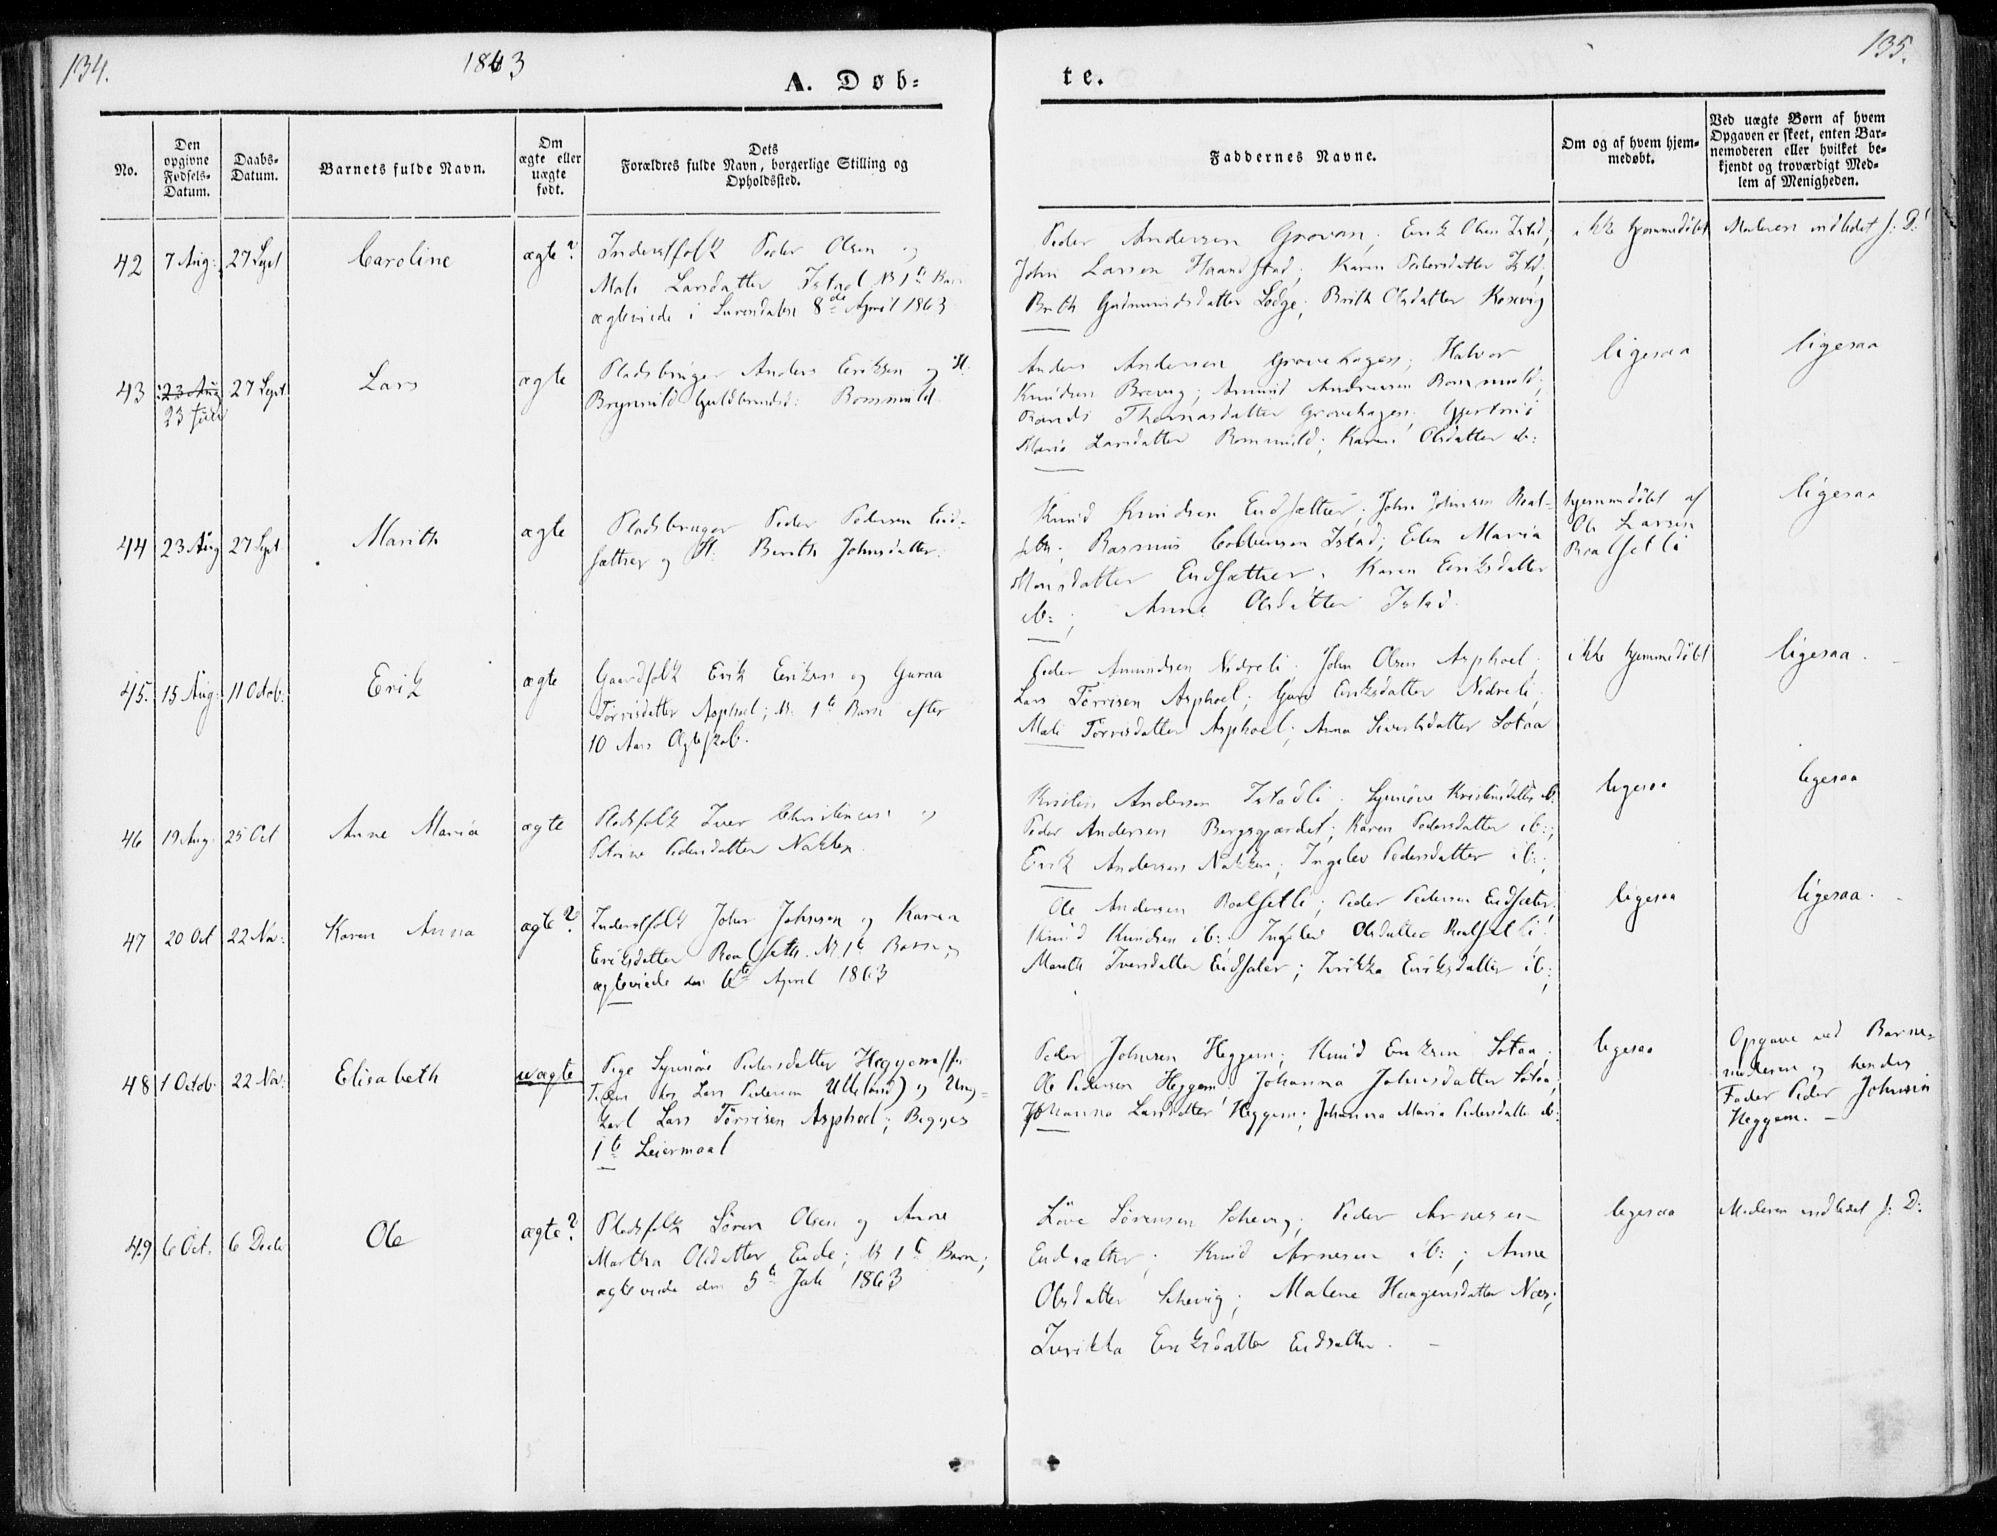 134.
1863
A. Døb=
te.
135.
No.
Den opgivne Fødsels-Datum.
Daabs-Datum.
Barnets fulde Navn.
Om ægte eller uægte født.
Dets Forældres fulde Navn, borgerlige Stilling og Opholdssted.
Faddernes Navne.
Om og af hvem hjemmedøbt.
Ved uægte Børn af hvem Opgaven er skeet, enten Barnemoderen eller hvilket bekjendt og troværdigt Medlem af Menigheden.
42 7 Aug: 27 Sept Caroline ægte?
Inderstfolk Peder Olsen og
Mali Larsdatter Istad N 1te Barn
ægteviede i Surendalen 8de April 1863
Peder Andersen Grovan; Erik Olsen Istad;
John Larsen Haandstad; Karen Pedersdatter Istd;
Brith Gudmundsdatter Lodge; Brith Olsdatter
ikke hjemmedøbt
Moderen indledet s: D:
43 23 Aug 27 Sept. Lars ægte
23 Juli
Pladsbruger Anders Eriksen og H:
Brynnild Guldbrandsd: Rommuld
Anders Andersen Grovehagen; Halvor
Knudsen Brevig; Amund Andersen Rommuld;
Randi Thomasdatter Grovehagen; Gjertrud
Maria Larsdatter Rommuld; Karen Olsdatter ib:
ligesaa
ligesaa
44 23 Aug 27 Sept Marith ægte
Pladsbruger Peder Pedersen End-
sæther og H. Berith Johnsdatter.
Knud Knudsen Endsæther; John Johnsen Roal-
seth; Rasmus Istad; Elen Maria
Monsdatter Endsæther; Karen Eriksdatter
ib:; Anne Olsdatter Istad.
hjemmedøbt af
Ole Larsen
Roalsetli
ligesaa
45. 15 Aug: 11 Octob: Erik ægte
Gaardfolk Erik Eriksen og Guraa
Torrisdatter Asphoel; N. 1te Barn efter
10 Aars Ægteskab.
Peder Amundsen Nedreli; John Olsen Asphoel
Lars Torrisen Asphoel; Guro Eriksdatter Nedreli;
Mali Torrisdatter Asphoel; Anna Sivertsdatter Sotaa
ikke hjemmedøbt
ligesaa.
46 19 Aug: 25 Oct Anne Maria ægte
Pladsfolk Iver Christensen og
Petrine Pedersdatter Nakken.
Kristen Andersen Istadli; Synnøve Kristensdatter ib:
Peder Andersen Bergsgjærdet; Karen Pedersdatter ib:;
Erik Andersen Nakken; Ingelev Pedersdatter ib:;
ligesaa
ligesaa
47 20 Oct 22 Nov: Karen Anna ægte?
Inderstfolk John Johnsen og Karen
Eriksdatter Roalseth. N. 1te Barn;
ægteviede den 6te April 1863
Ole Andersen Roalsetli; Peder Pedersen Endsæter;
Knud Knudsen ib:; Ingelev Olsdatter Roalsetli;
Mareth Iversdatter Endsæter; Eriksdatter ib:;
ligesaa
ligesaa.
48 1 Octob: 22 Nov: Elisabeth uægte
Pige Synnøve Pedersdatter Heggem (
Tjen hos Lars Pedersen Utteland) og Ung-
karl Lars Torrisen Asphoel; Begges
1te Leiermaal
Peder Johnsen Heggem; Knud Eriksen Sotaa;
Ole Pedersen Heggem; Johanna Johnsdatter Sotaa;
Johanna Larsdatter Heggem; Johanna Maria Pedersdatter ib:
ligesaa
Opgave ved Barne-
moderen og hendes
Fader Peder Johnsen
Heggem. —
49 6 Oct. 6 Decb Ole ægte?
Pladsfolk Søren Olsen og Anne
Martha Olsdatter Eide; N 1te Barn;
ægteviede den 5te Juli 1863
Sørensen Schevig; Peder Arnesen
Endsæther; Knud Arnesen ib:; Anne
Olsdatter Schevig; Malene Haagensdatter Næs;
Eriksdatter Endsæther. —
ligesaa
Moderen indledet s: D: